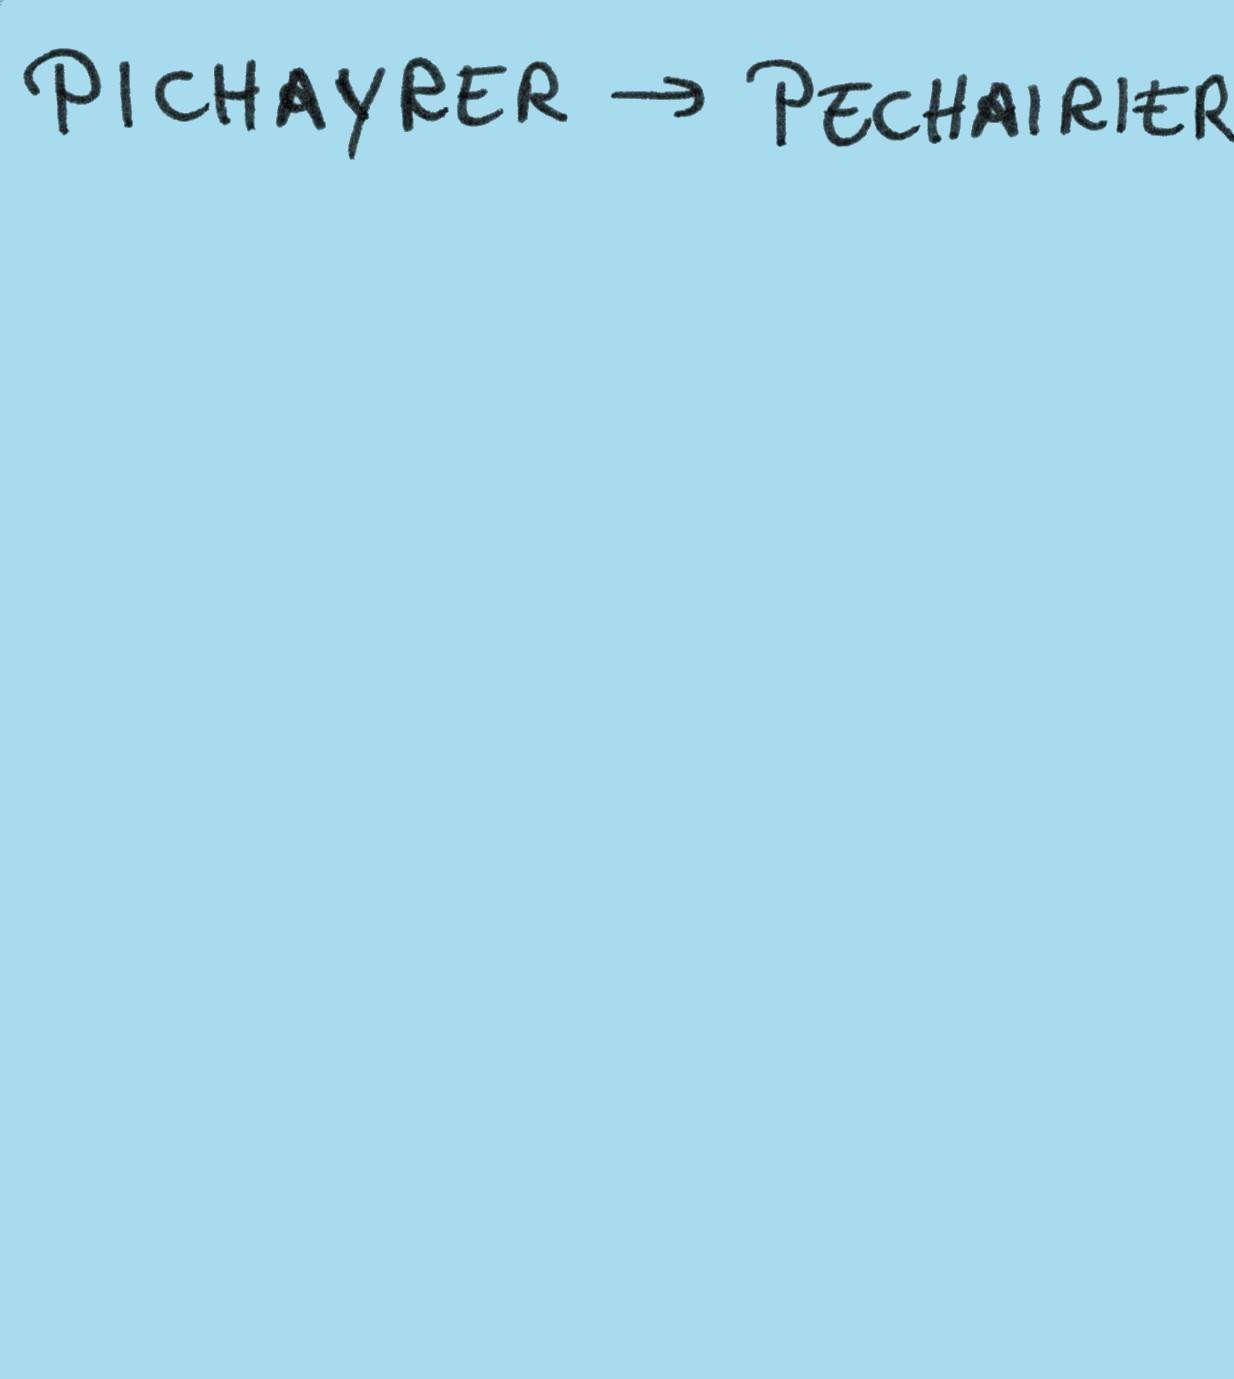 PICHAYRER → PECHAIRIER